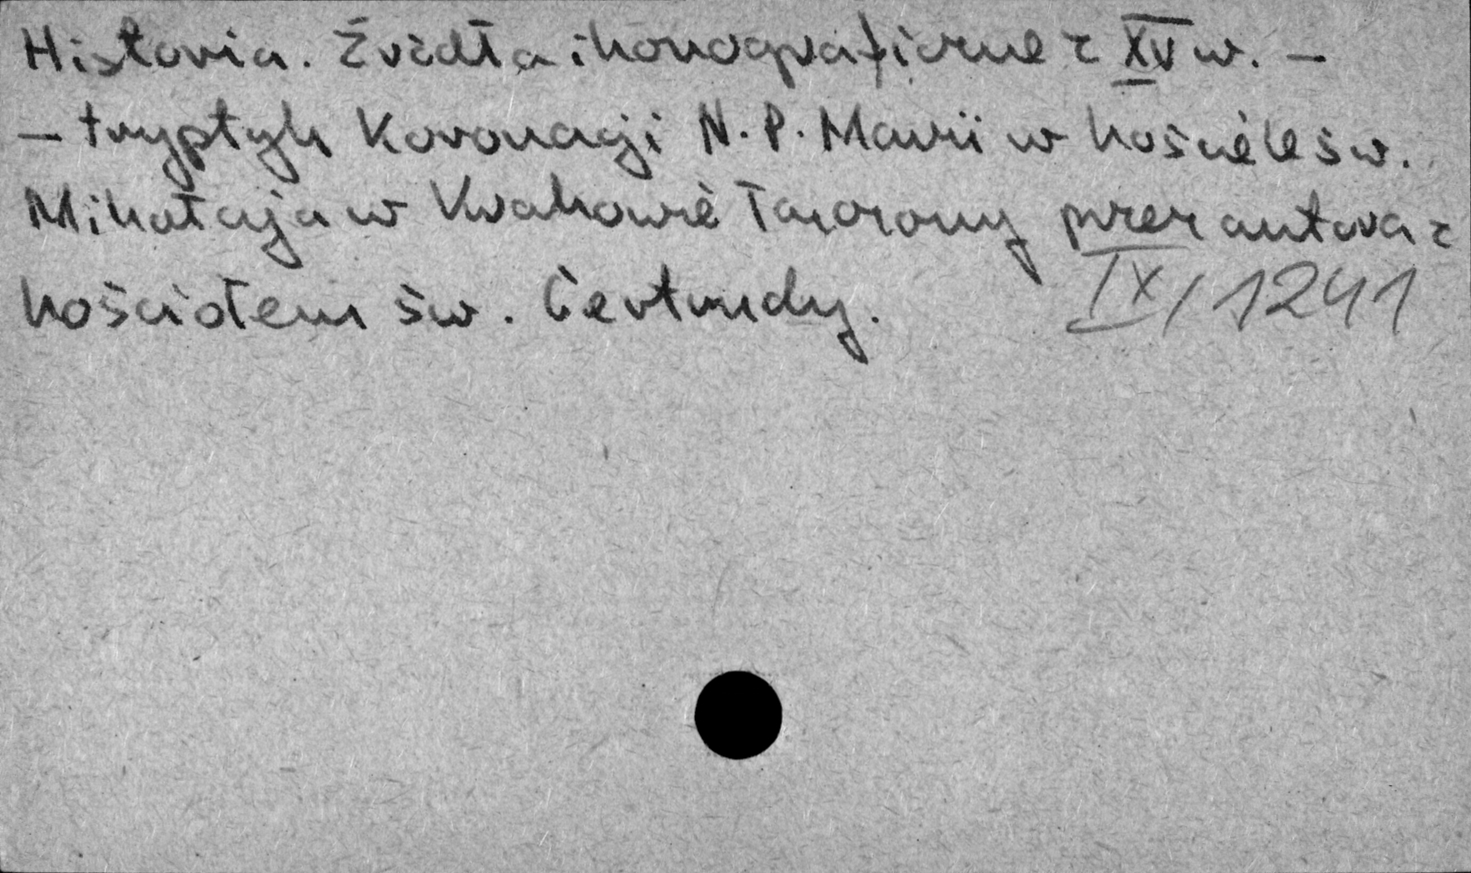 Historia. Źródła ikonograficzne z XV w. –
– tryptyk Koronacji N.P. Marii w kościele św.
Mikołaja w Krakowie łączony przez autora z
kościołem św. Gertrudy.
IX/1241